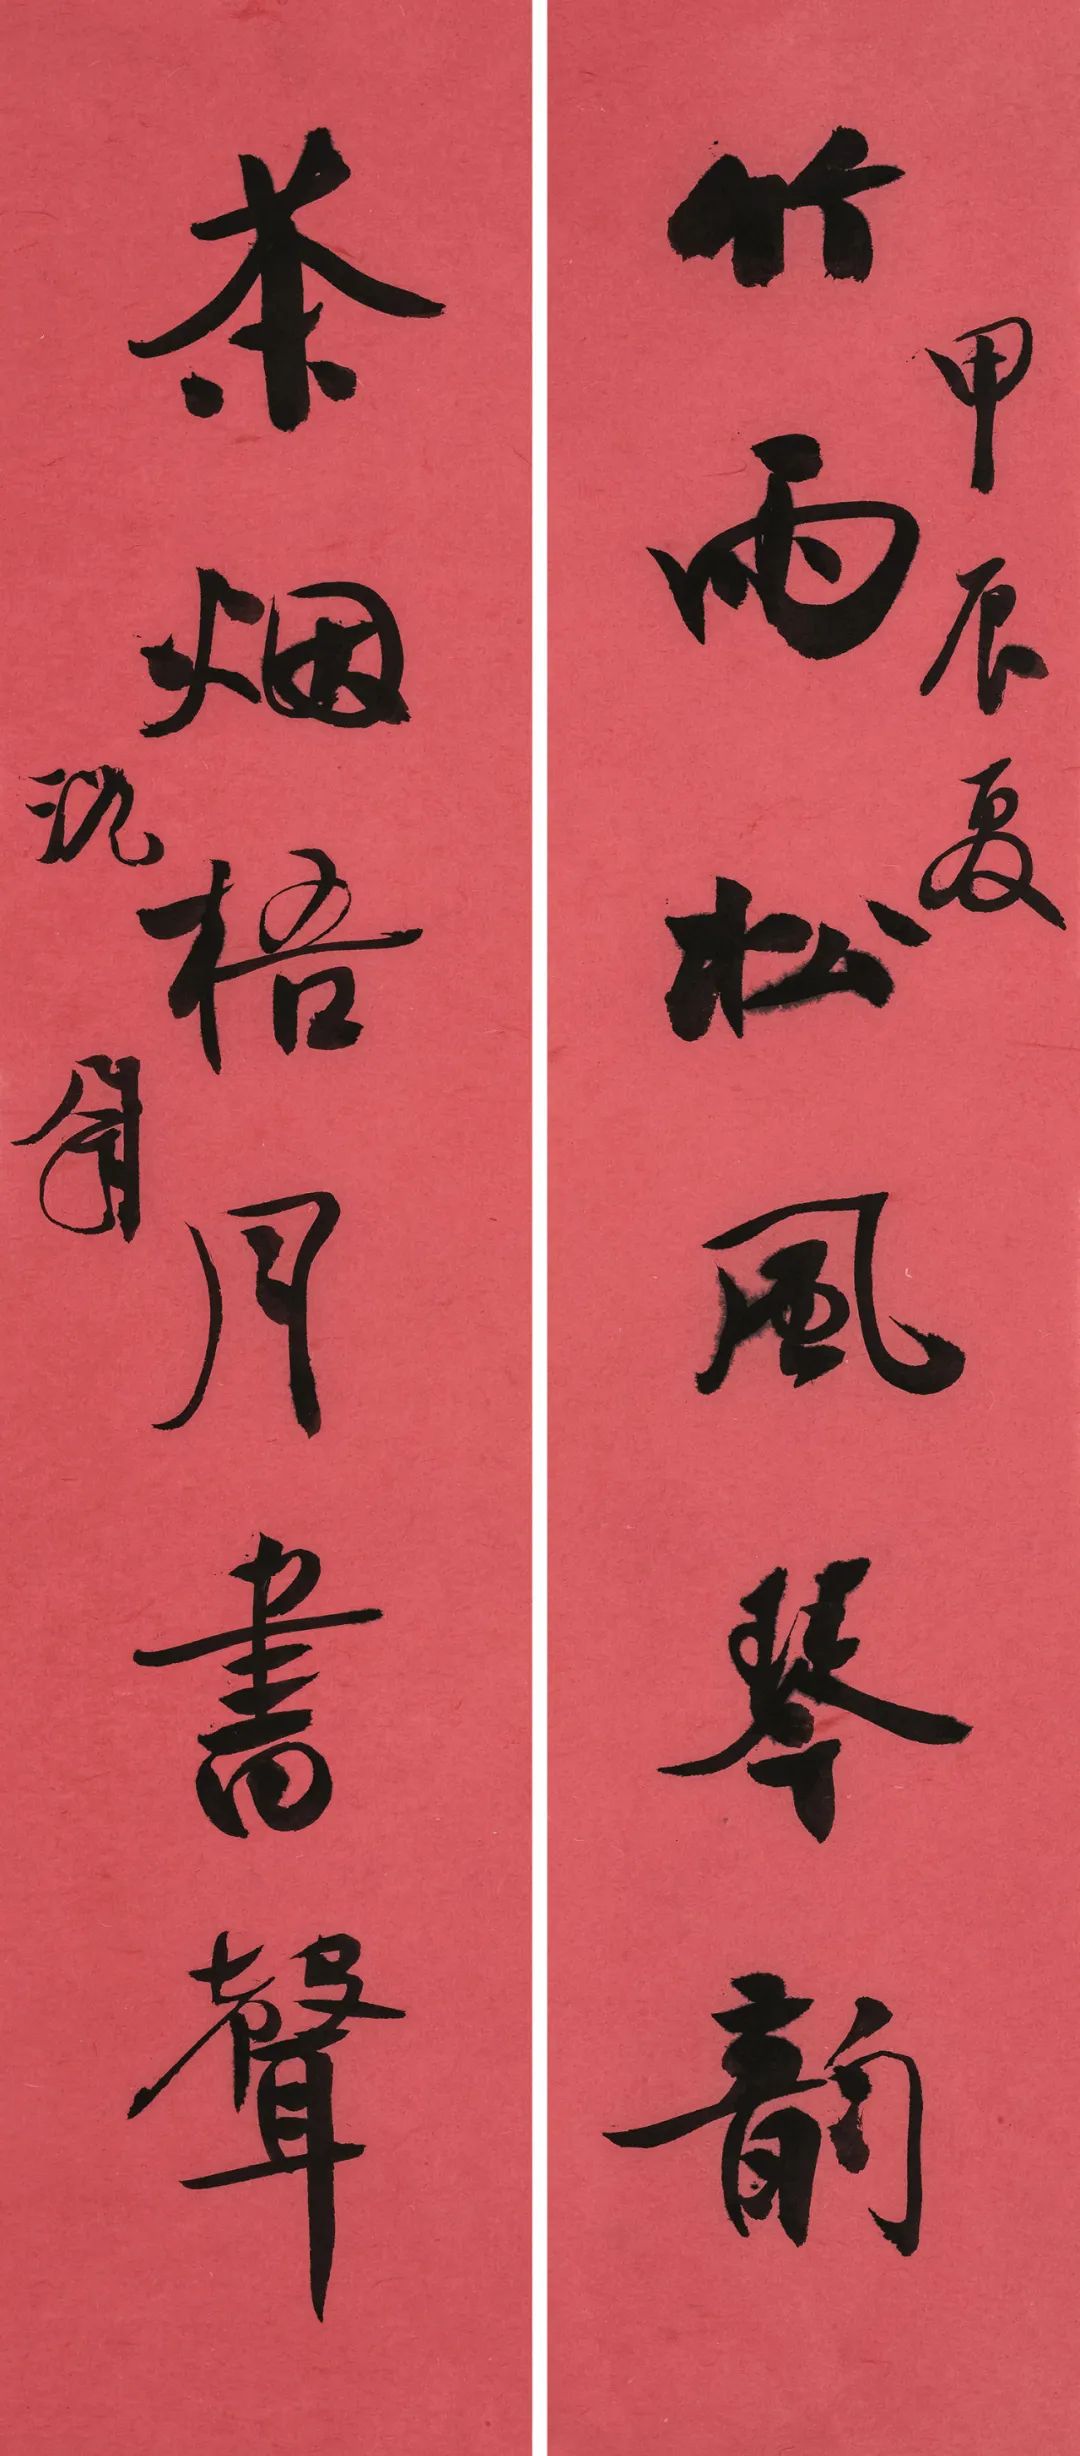 甲辰夏
竹雨松風琴韵
茶烟梧月書聲
沈